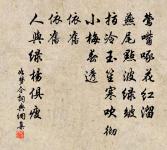 鶯嘴啄花紅溜
燕尾點波綠皺
指冷玉笙寒吹徹
小梅春透
依舊
依舊
人與綠楊俱瘦